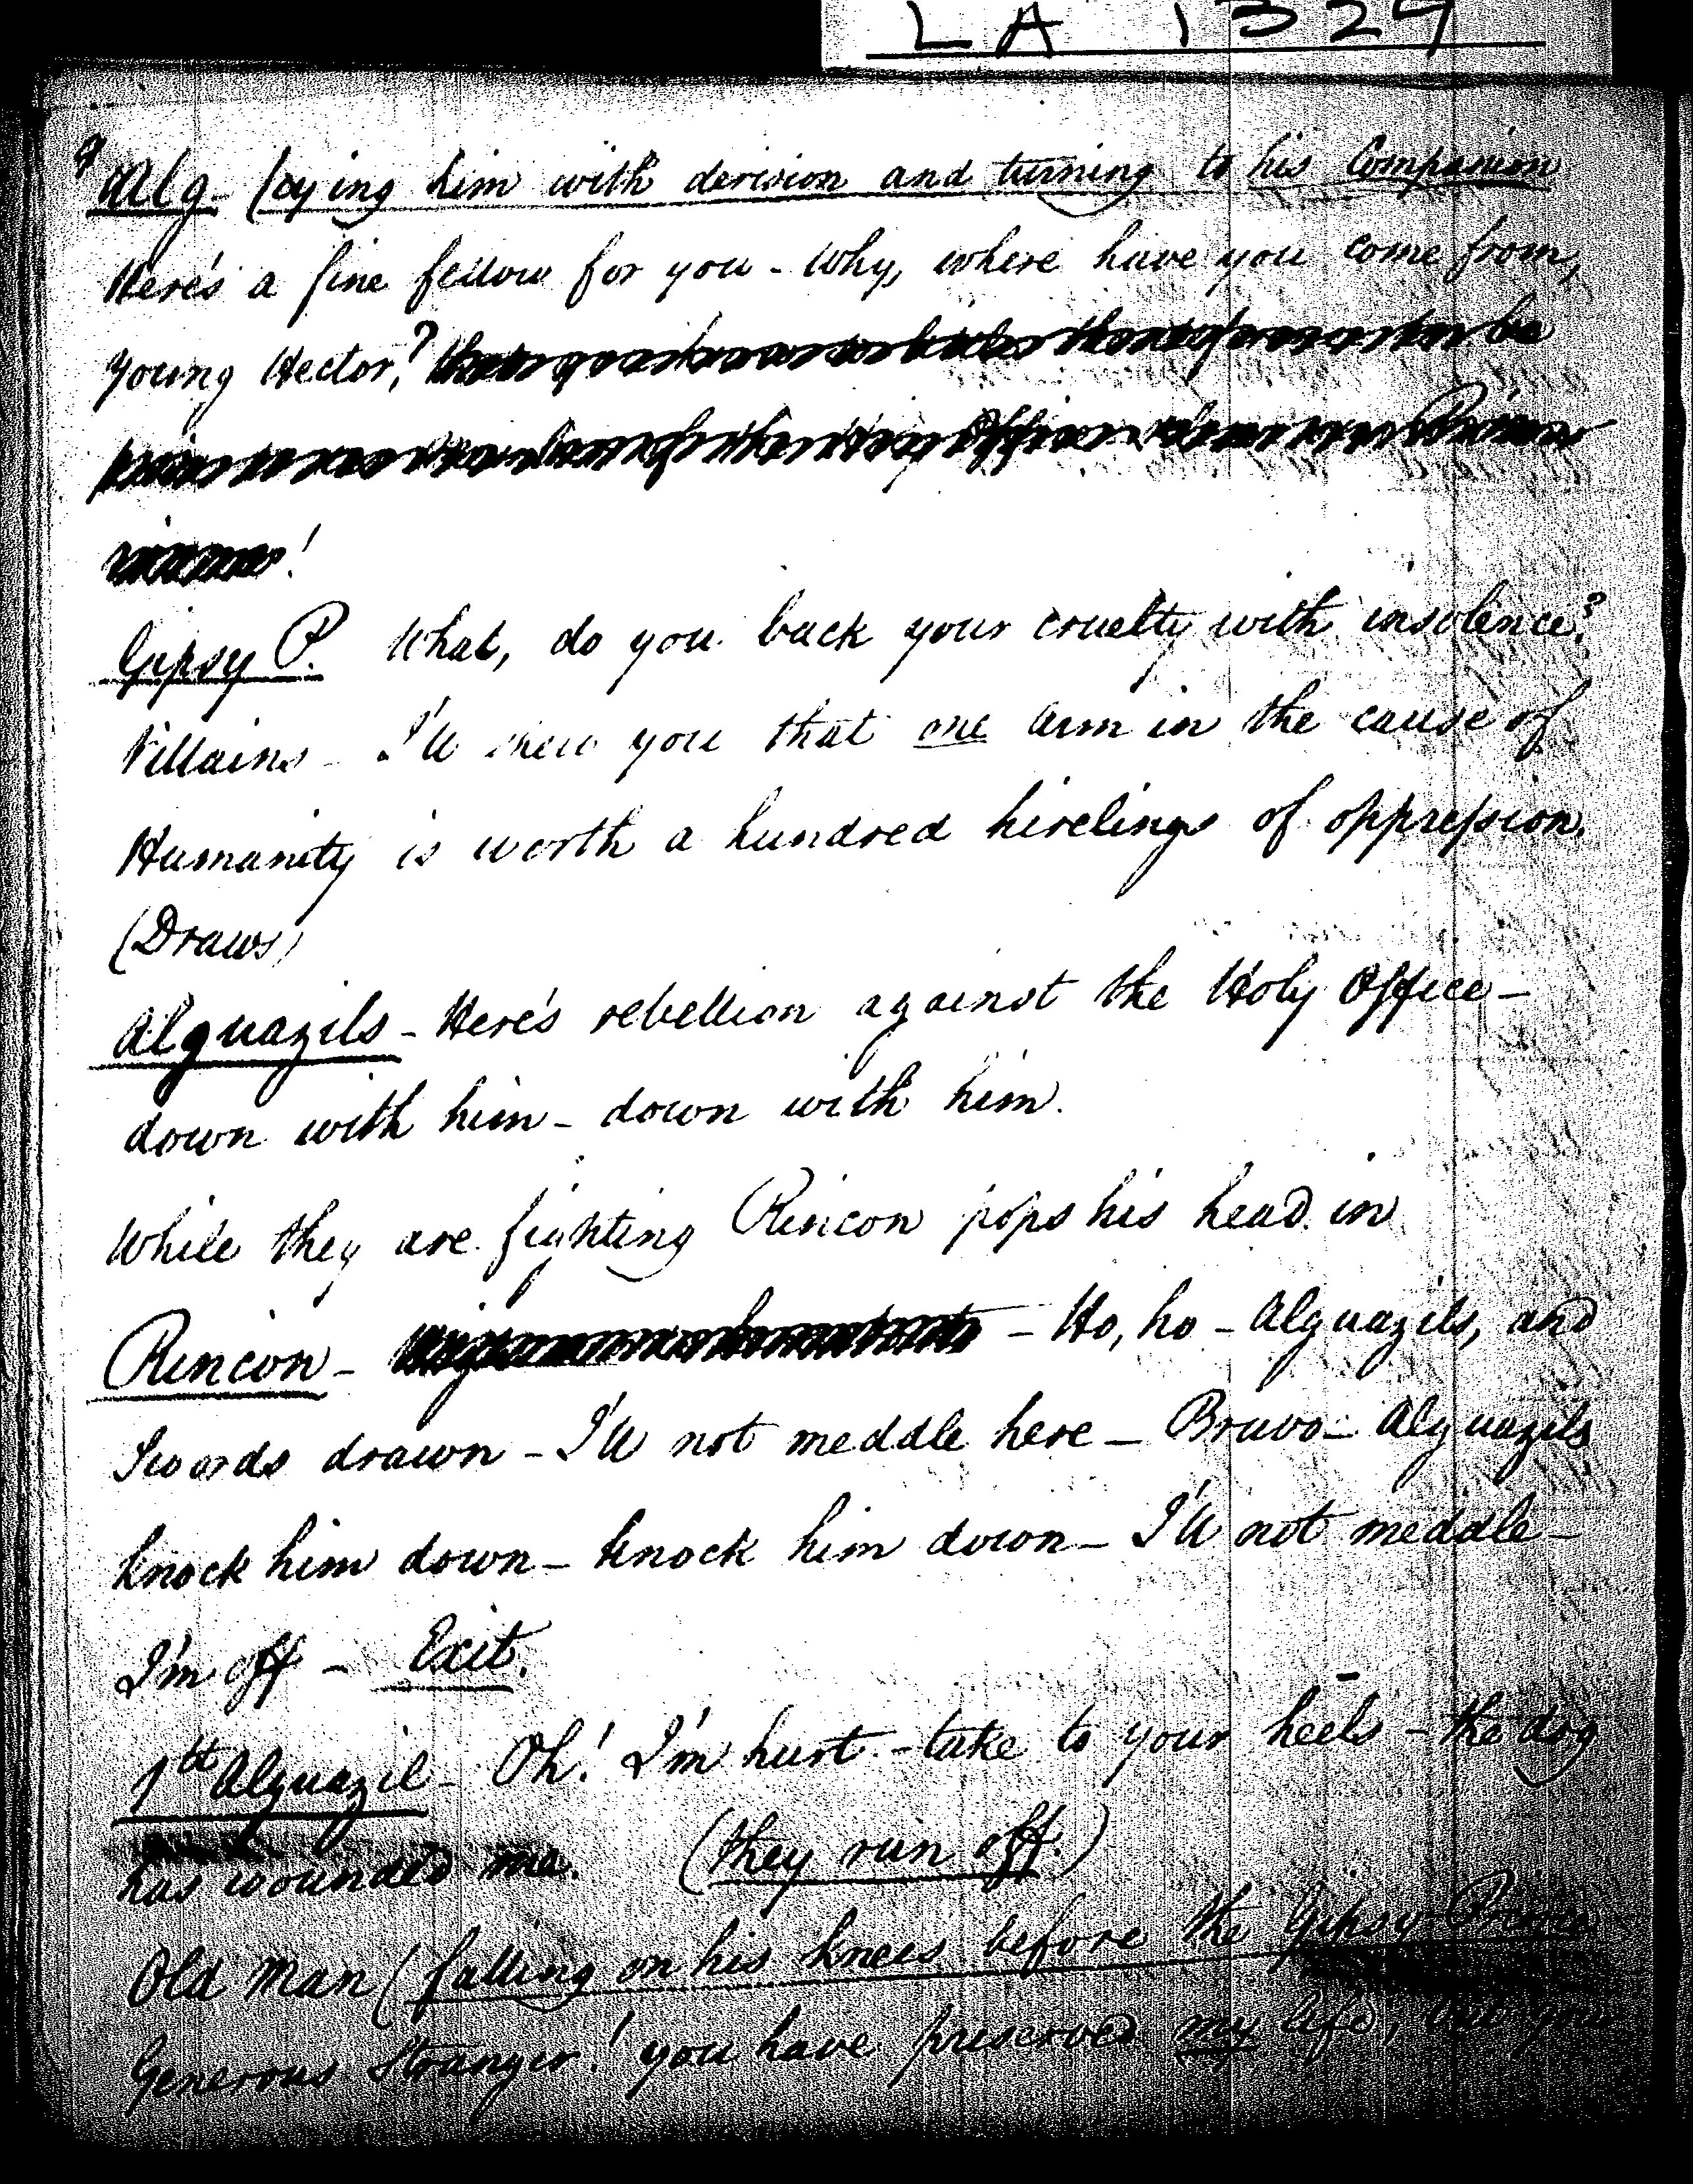 LA 1324
Alg. (eying him with derision and turning to his Companion
Here's a fine fellow for you - Why, where have you come from,
Young Hector,?
!
Gipsy P. What, do you back your cruelty with insolence?
Villains - I'll shew you that one arm in the cause of
Humanity is worth a hundred hirelings of oppression.
(Draws)
Alguazils - Here's rebellion against the Holy Office -
down with him - down with him.
While they are fighting Rincon pops his head in
Rincon - - Ho, ho - Alguazils, and
Swords drawn - I'll not meddle here - Bravo - Alguazils
knock him down - knock him down - I'll not meddle -
I'm off - Exit.
1st Alguazil - Oh! I'm hurt - take to your heels - the dog
has wounded me. (they run off.)
Old Man (falling on his knees before the Gipsy Prince
Generous Stranger! you have preserved my life,